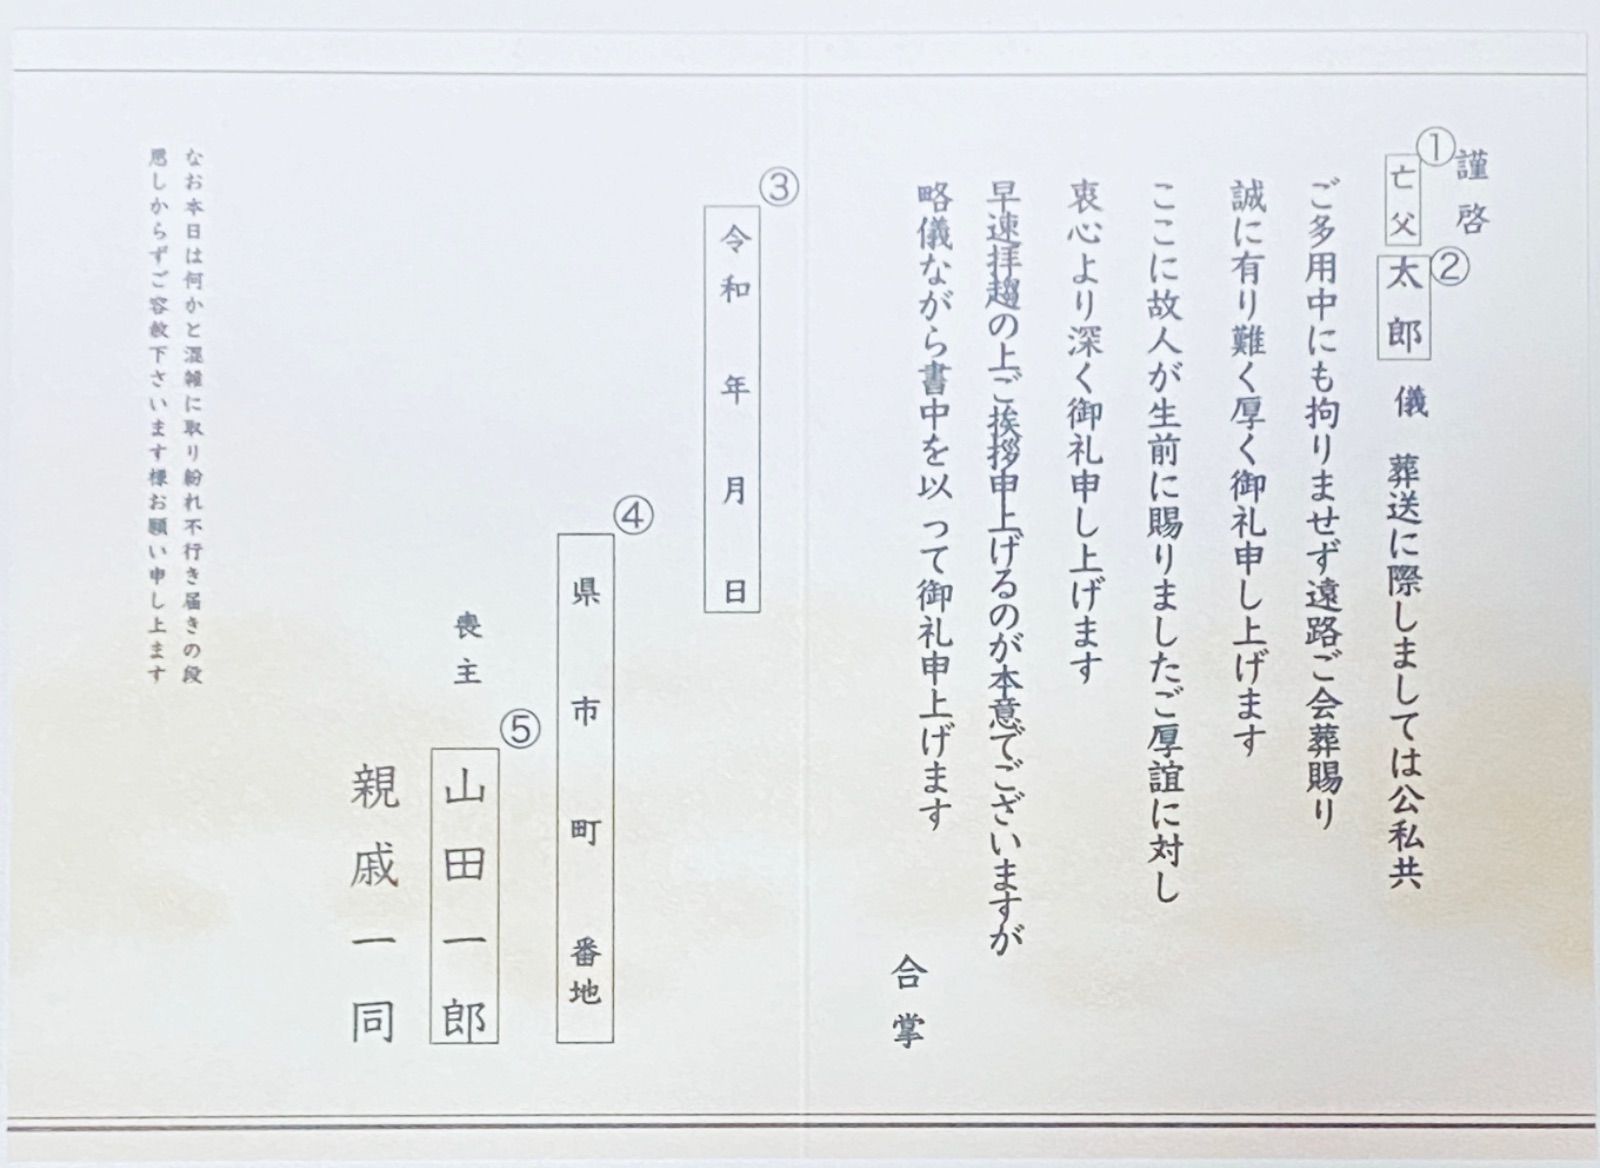 謹啓
①亡父②太郎 儀 葬送に際しましては公私共
ご多用中にも拘りませず遠路ご会葬賜り
誠に有り難く厚く御礼申し上げます
ここに故人が生前に賜りましたご厚誼に対し
衷心より深く御礼申し上げます
早速拝趨の上ご挨拶申上げるのが本意でございますが
略儀ながら書中を以って御礼申上げます
合掌
③令和 年 月 日
④県 市 町 番地
喪主 ⑤山田一郎
親戚一同
なお本日は何かと混雑に取り紛れ不行き届きの段
悪しからずご容赦下さいます様お願い申し上ます